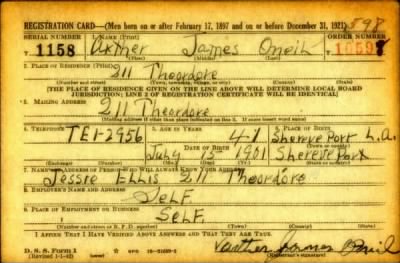 REGISTRATION CARD—(Men born on or after February 17, 1897 and on or before December 31, 1921) 898
SERIAL NUMBER 1. NAME (Print) ORDER NUMBER
T 1158 Arther James Oneil T 10598
(First) (Middle) (Last)
2. PLACE OF RESIDENCE (Print)
211 Theordore
(Number and street) (Town, township, village, or city) (County) (State)
[THE PLACE OF RESIDENCE GIVEN ON THE LINE ABOVE WILL DETERMINE LOCAL BOARD
JURISDICTION; LINE 2 OF REGISTRATION CERTIFICATE WILL BE IDENTICAL]
3. MAILING ADDRESS
211 Theordore
[Mailing address if other than place indicated on line 2. If same insert word same]
4. TELEPHONE 5. AGE IN YEARS 6. PLACE OF BIRTH
TE1-2956 41 Shereve Port L.A.
DATE OF BIRTH (Town or county)
July 15 1901 Shereve Port
(Exchange) (Number) (Mo.) (Day) (Yr.) (State or country)
7. NAME AND ADDRESS OF PERSON WHO WILL ALWAYS KNOW YOUR ADDRESS
Jessie Ellis 211 Theordore
8. EMPLOYER'S NAME AND ADDRESS
SeLF
9. PLACE OF EMPLOYMENT OR BUSINESS
SeLF
(Number and street or R. F. D. number) (Town) (County) (State)
I AFFIRM THAT I HAVE VERIFIED ABOVE ANSWERS AND THAT THEY ARE TRUE.
D. S. S. Form 1
(Revised 1-1-42) (over) James Oneil